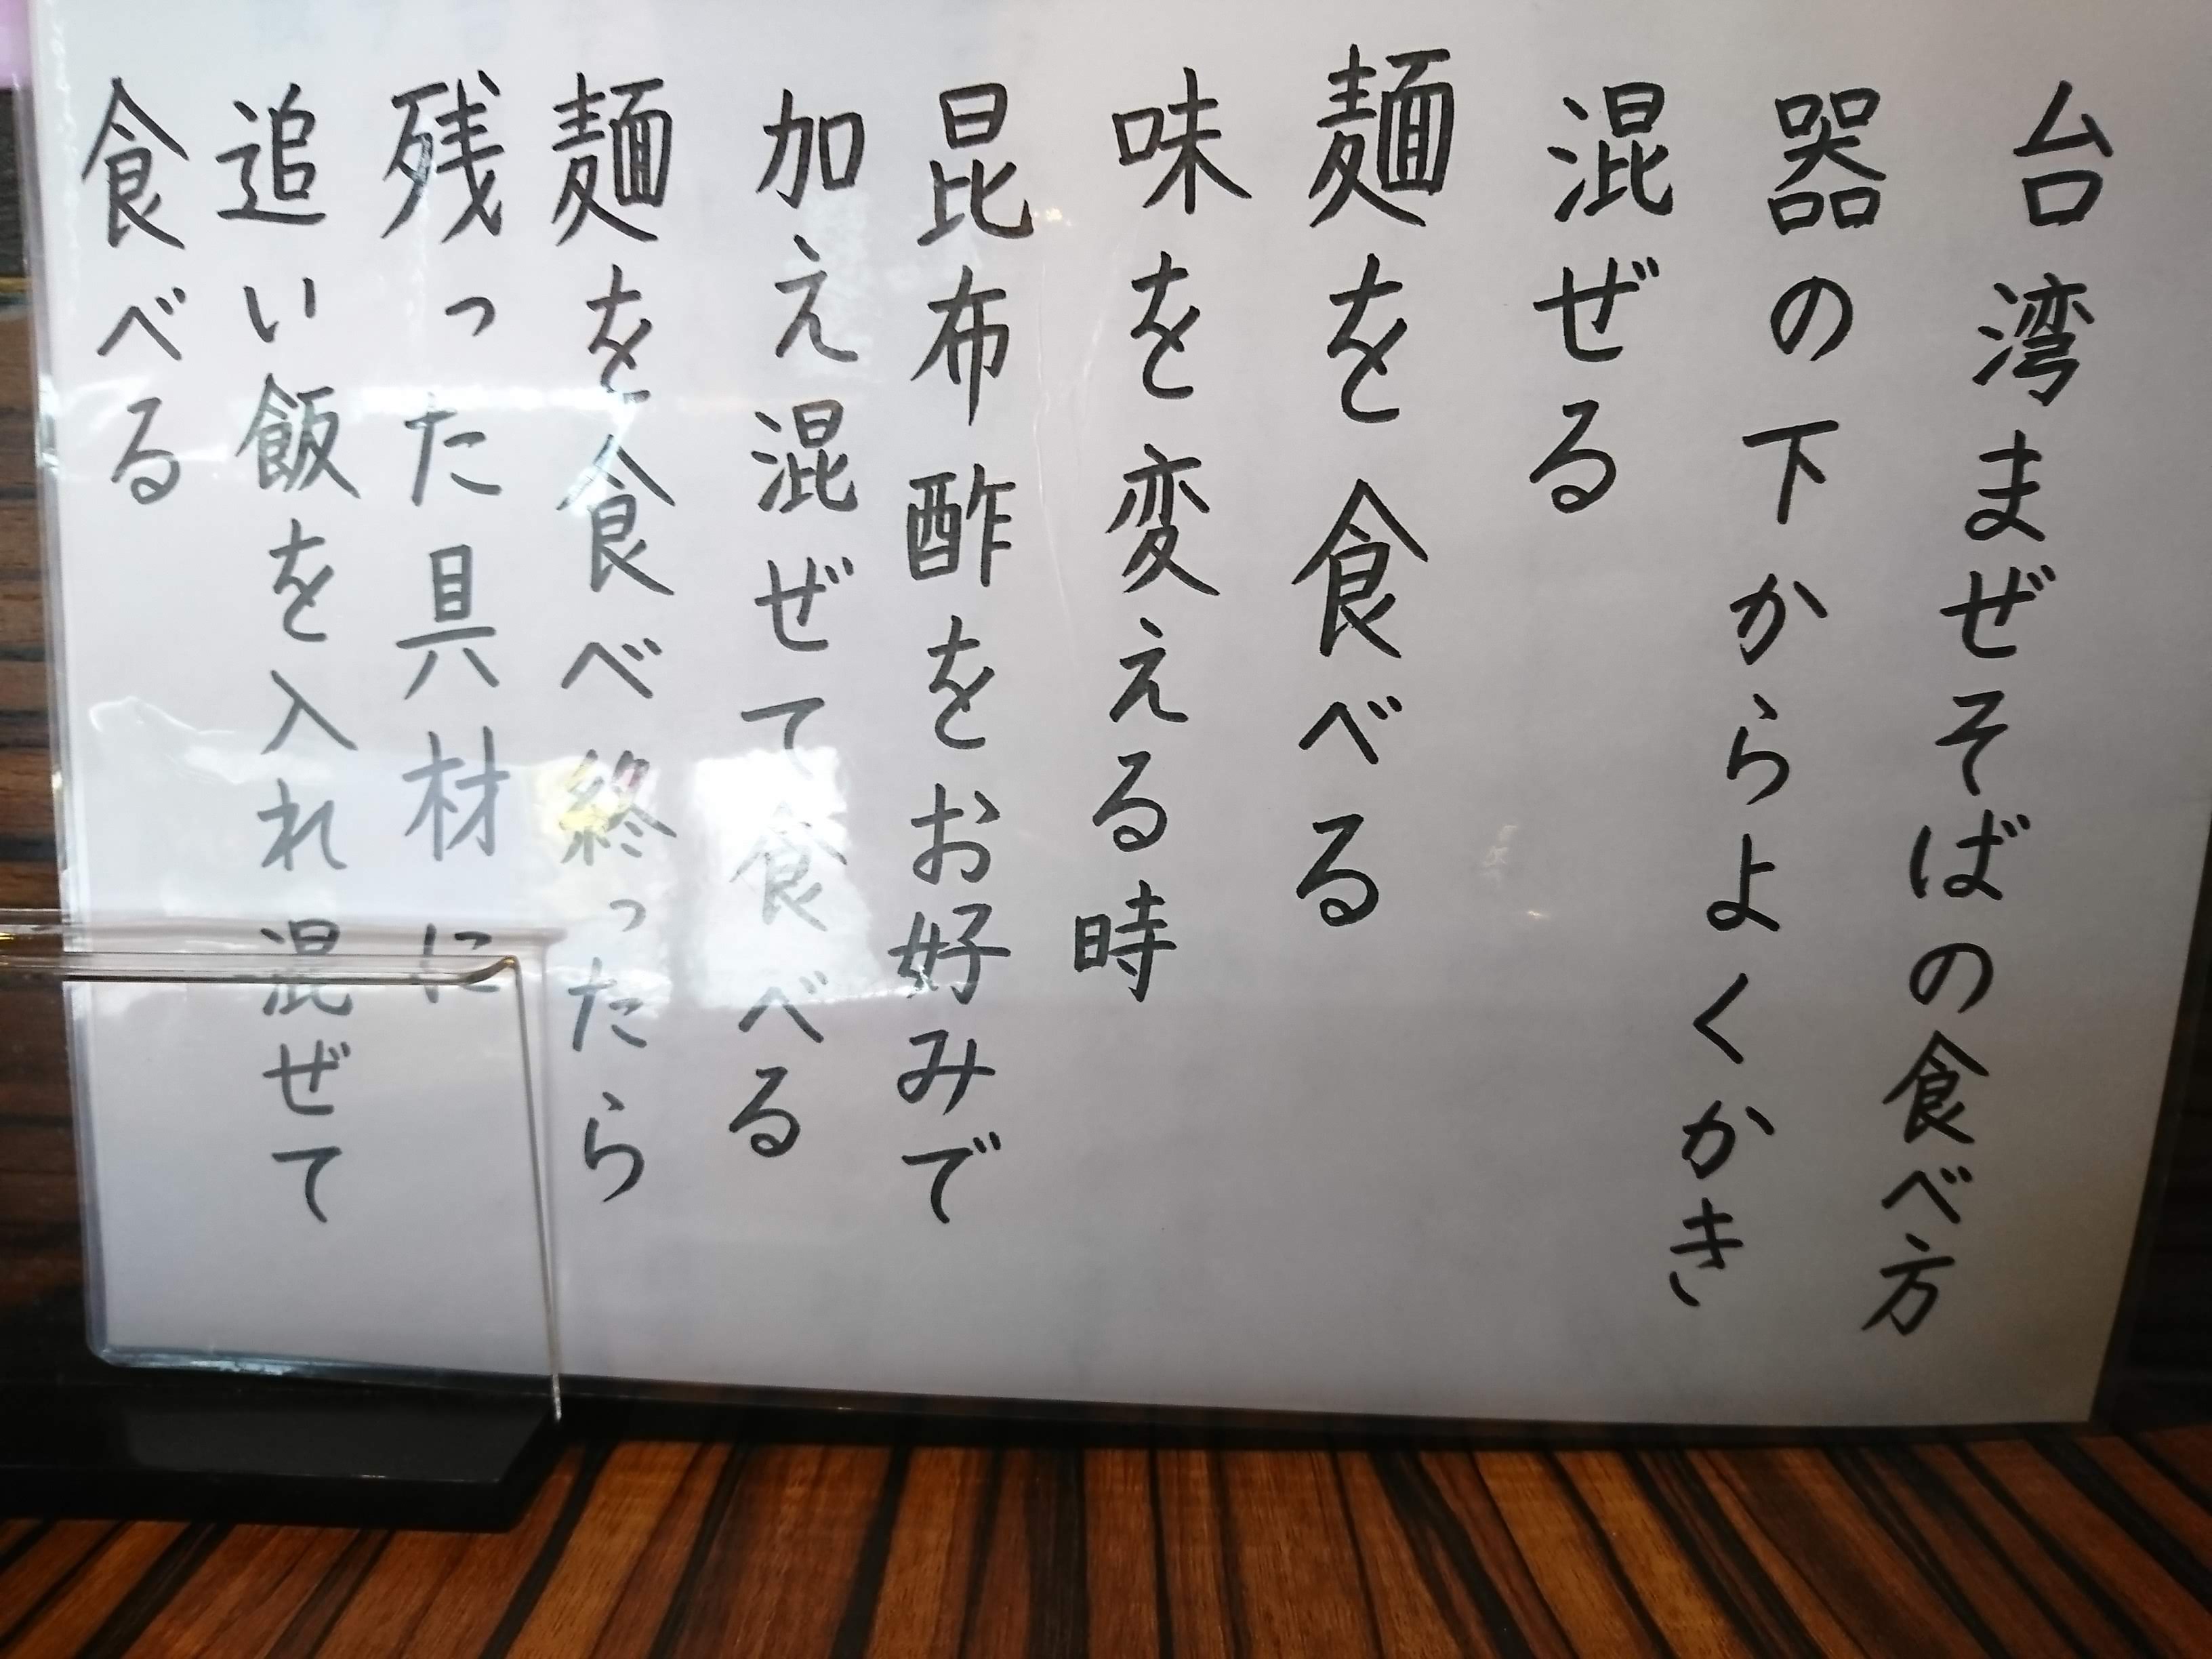 台湾まぜそばの食べ方
器の下からよくかき
混ぜる
麺を食べる
味を変える時
昆布酢をお好みで
加え混ぜて食べる
麺を食べ終ったら
残った具材に
追い飯を入れ混ぜて
食べる